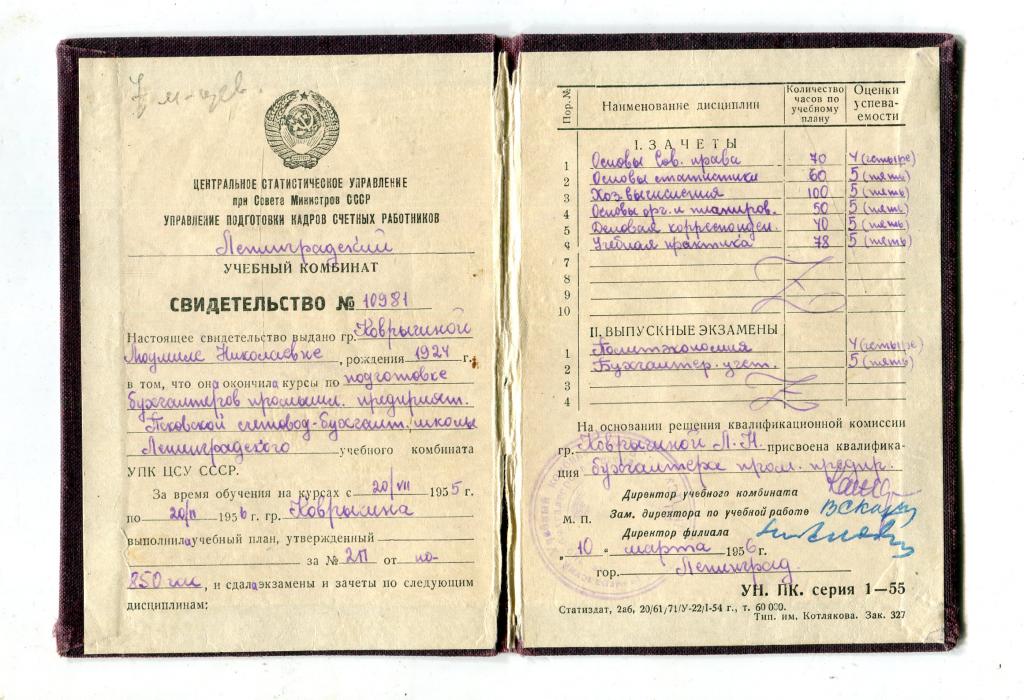 7 м-цев.
ЦЕНТРАЛЬНОЕ СТАТИСТИЧЕСКОЕ УПРАВЛЕНИЕ
при Совете Министров СССР
УПРАВЛЕНИЕ ПОДГОТОВКИ КАДРОВ СЧЕТНЫХ РАБОТНИКОВ
Ленинградский
УЧЕБНЫЙ КОМБИНАТ
СВИДЕТЕЛЬСТВО № 10981
Настоящее свидетельство выдано гр. Коврыгиной
Людмиле Николаевне, рождения 1924 г.
в том, что она окончила курсы по подготовке
бухгалтеров промышл. предприят.
Псковской счетовод-бухгалт. школы
Ленинградского учебного комбината
УПК ЦСУ СССР.
За время обучения на курсах с 20/VII 1955 г.
по 20/II 1956 г. гр. Коврыгина
выполнила учебный план, утвержденный
за № 2П от по-
850 час, и сдала экзамены и зачеты по следующим
дисциплинам:
Пор. № Наименование дисциплин Количество часов по учебному плану Оценки успева-емости
I. ЗАЧЕТЫ
1 Основы Сов. права 70 4 (четыре)
2 Основы статистики 60 5 (пять)
3 Хоз. вычисления 100 5 (пять)
4 Основы орг. и планиров. 50 5 (пять)
5 Деловая корреспонден. 40 5 (пять)
6 Учебная практика 78 5 (пять)
7
8
9
10
II. ВЫПУСКНЫЕ ЭКЗАМЕНЫ
1 Политэкономия 4 (четыре)
2 Бухгалтер. учет. 5 (пять)
3
4
На основании решения квалификационной комиссии
гр. Коврыгиной Л. Н. присвоена квалифика-
ция бухгалтера пром. предпр.
Директор учебного комбината
Зам. директора по учебной работе
М. П. Директор филиала
„10" марта 1956 г.
гор. Ленинград.
УН. ПК. серия 1—55
Статиздат, 2аб, 20/61/71/У-22/I-54 г., т. 60 000.
Тип. им. Котлякова. Зак. 327